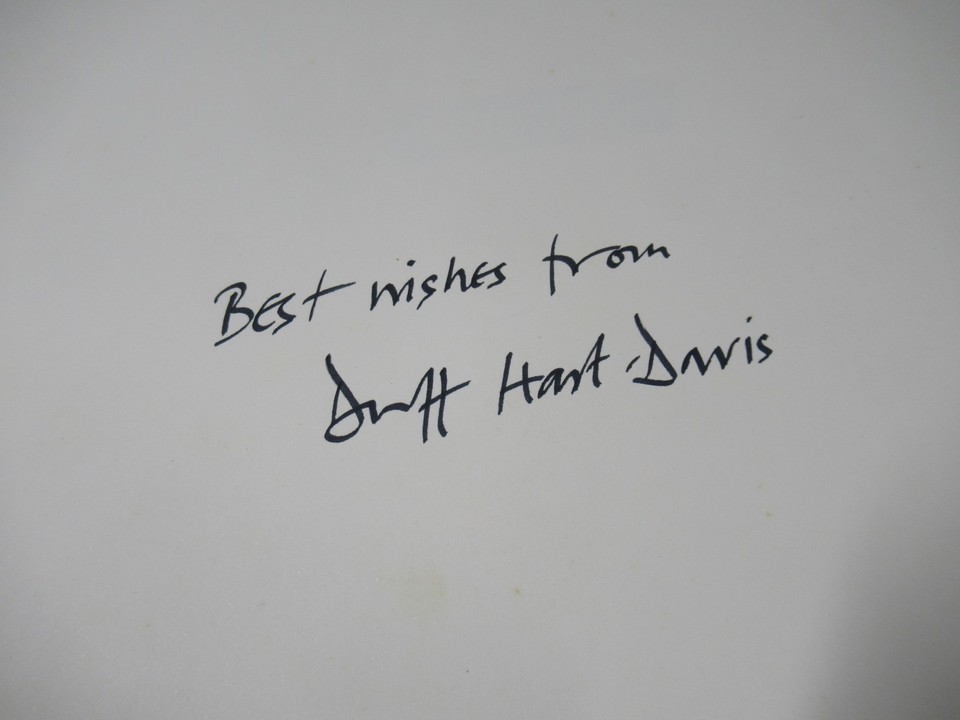 Best wishes from
Duff Hart-Davis